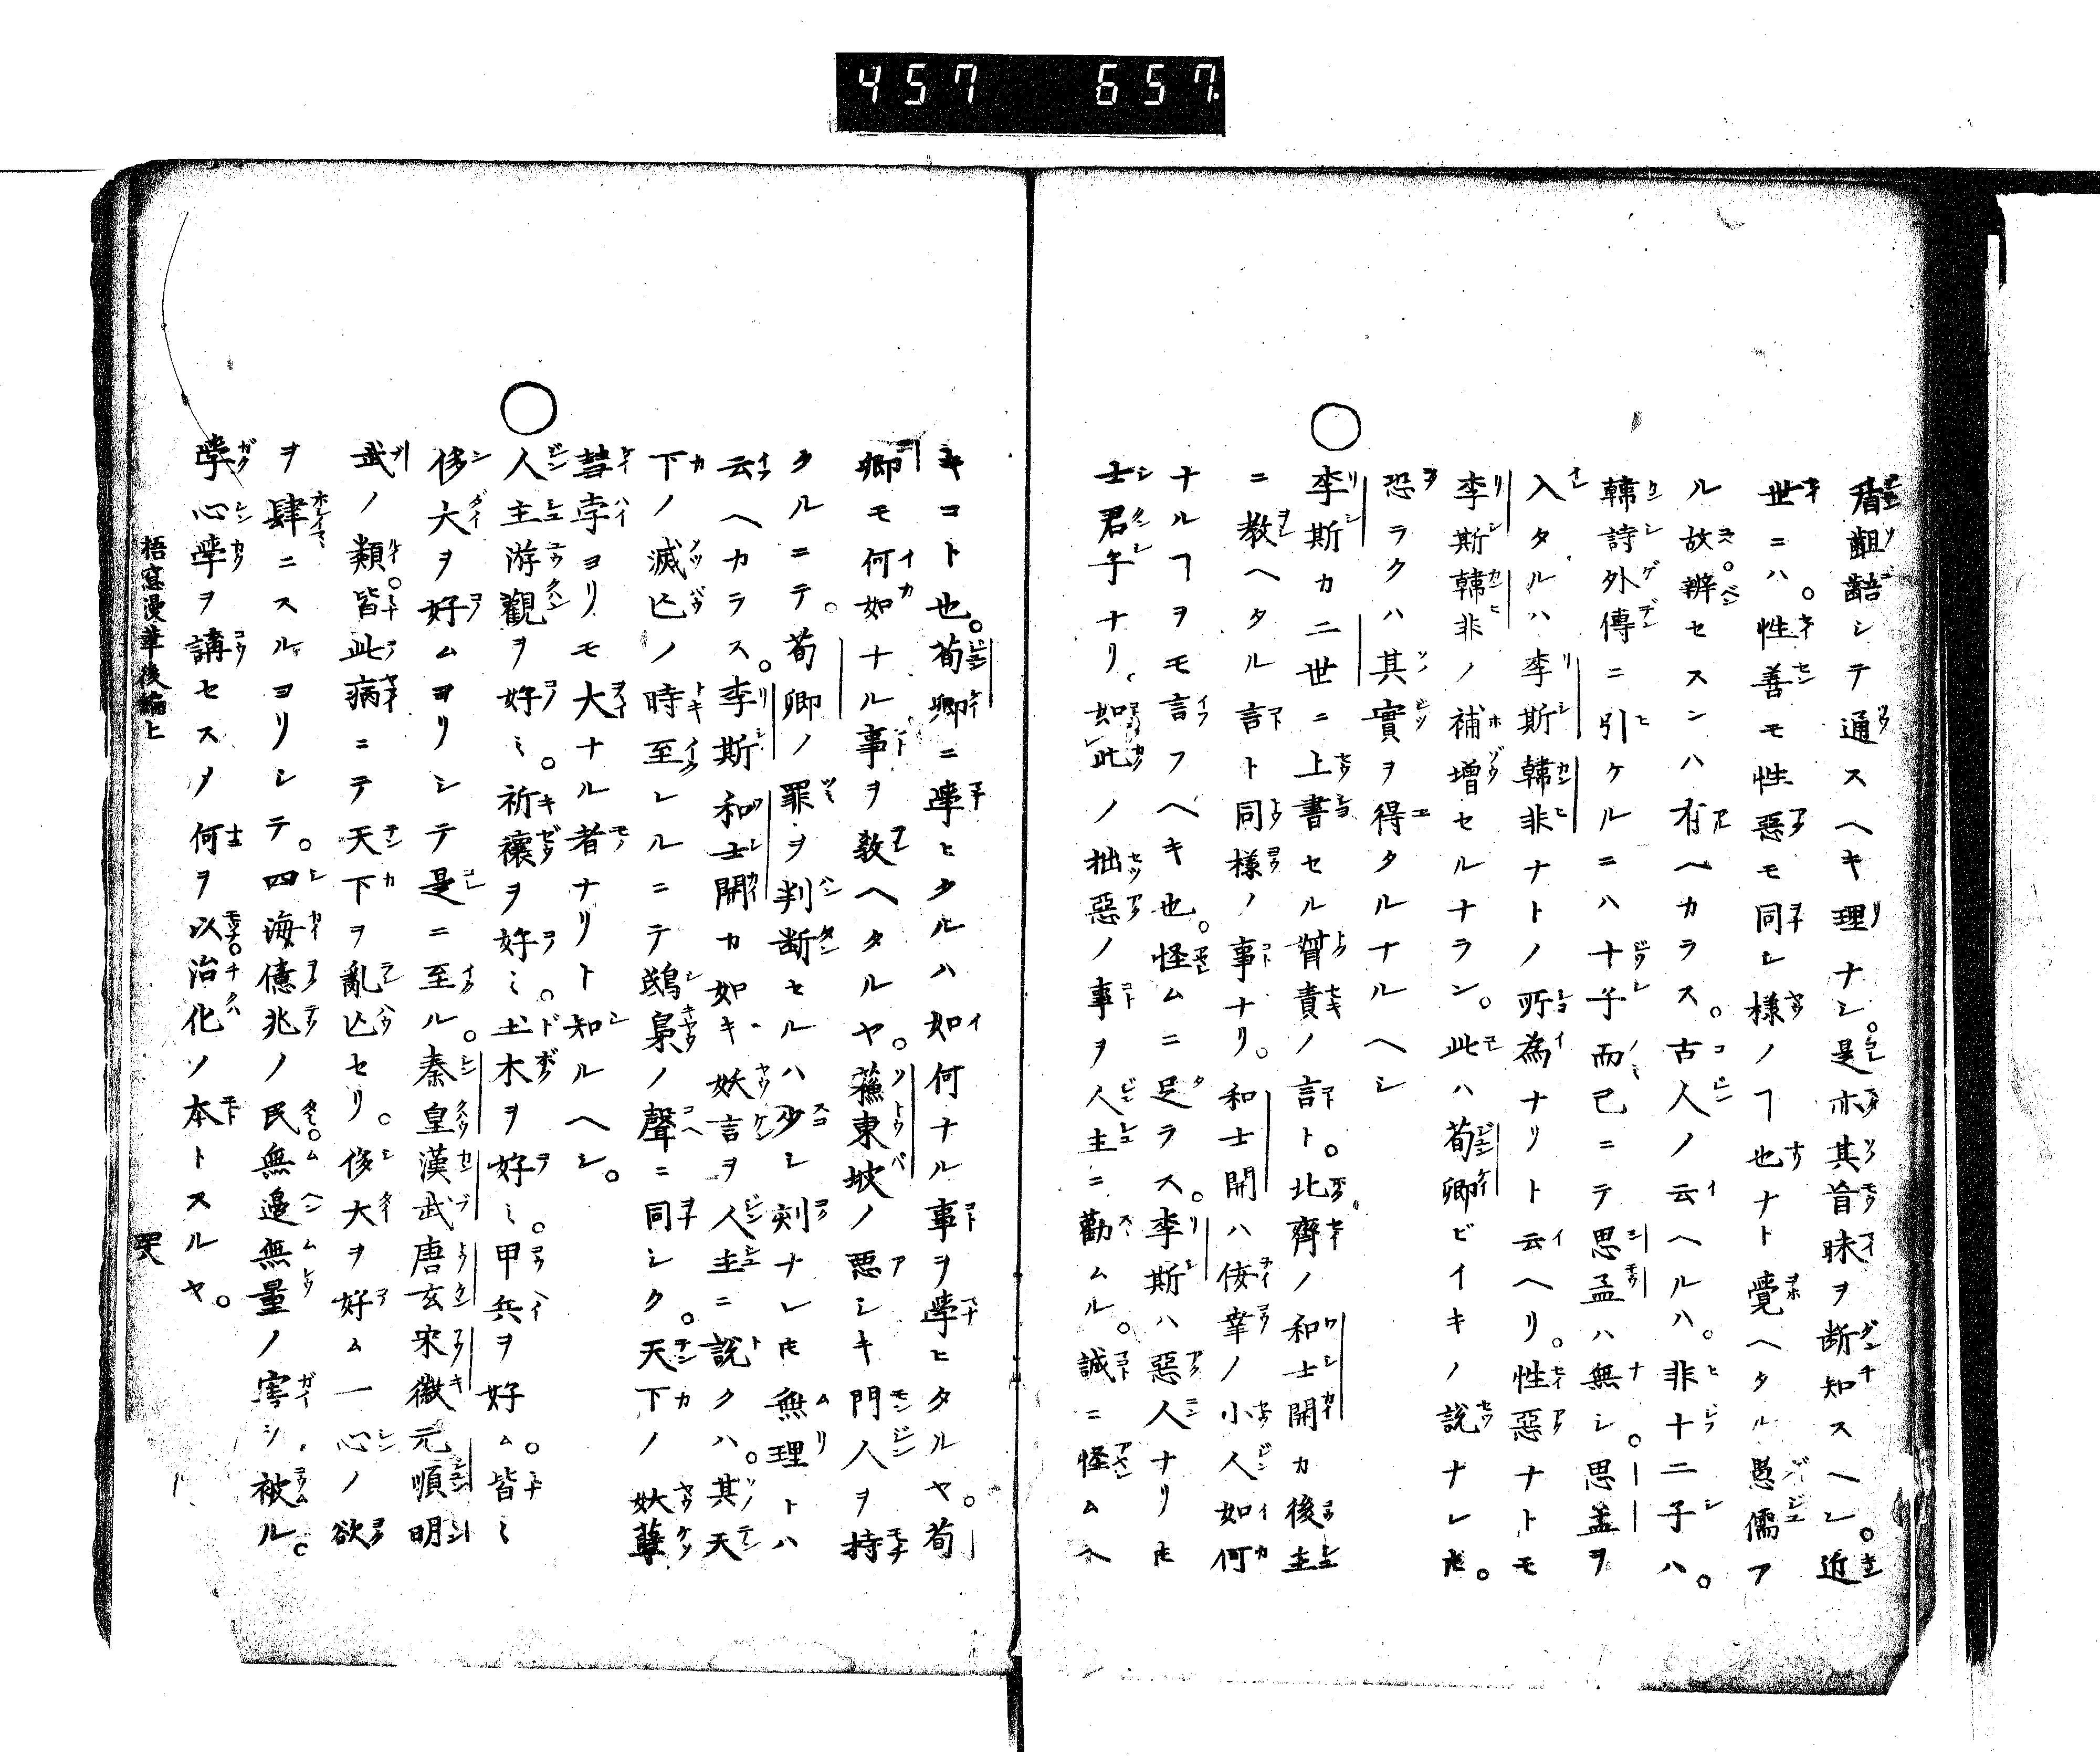 457 657
盾齟齬シテ通スヘキ理ナシ。是亦其首昧ヲ断知スヘシ。近
世ニハ。性善モ性惡モ同シ様ノヿ也ナト覺ヘタル愚儒ア
ル故。辨セスンハ有ヘカラス。古人ノ云ヘルハ。非十二子ハ。
韓詩外傳ニ引ケルニハ十子而已ニテ思孟ハ無シ。思孟ヲ
入タルハ李斯韓非ナトノ所為ナリト云ヘリ。性惡ナトモ
李斯韓非ノ補増セルナラン。此ハ荀卿ビイキノ說ナレ𪜈。
恐ラクハ其實ヲ得タルナルヘシ
○李斯カ二世ニ上書セル督責ノ言ト。北齊ノ和士開カ後主
ニ教ヘタル言ト同樣ノ事ナリ。和士開ハ侫幸ノ小人如何
ナルヿヲモ言フヘキ也。怪ムニ足ラス。李斯ハ惡人ナリ𪜈
士君子ナリ。如此ノ拙惡ノ事ヲ人主ニ勸ムル。誠ニ怪ムヘ
キコト也。荀卿ニ學ヒタルハ如何ナル事ヲ學ヒタルヤ。荀
卿モ何如ナル事ヲ敎ヘタルヤ。蘓東坡ノ悪シキ門人ヲ持
タルニテ。荀卿ノ罪ヲ判断セルハ少シ刻ナレ𪜈無理トハ
云ヘカラス。李斯和士開カ如キ妖言ヲ人主ニ說クハ。其天
下ノ滅亡ノ時至レルニテ鴟梟ノ聲ニ同シク。天下ノ妖孽
彗孛ヨリモ大ナル者ナリト知ルヘシ。
○人主游觀ヲ好ミ。祈禳ヲ好ミ。土木ヲ好ミ。甲兵ヲ好ム。皆ミ
侈大ヲ好ムヨリシテ是ニ至ル。秦皇漢武唐玄宋徽元順明
武ノ類。皆此病ニテ天下ヲ亂亡セリ。侈大ヲ好ム一心ノ欲
ヲ肆ニスルヨリシテ。四海億兆ノ民無邉無量ノ害ヲ被ル。
學心學ヲ講セスメ何ヲ以治化ノ本トスルヤ。
梧窓漫筆後編上